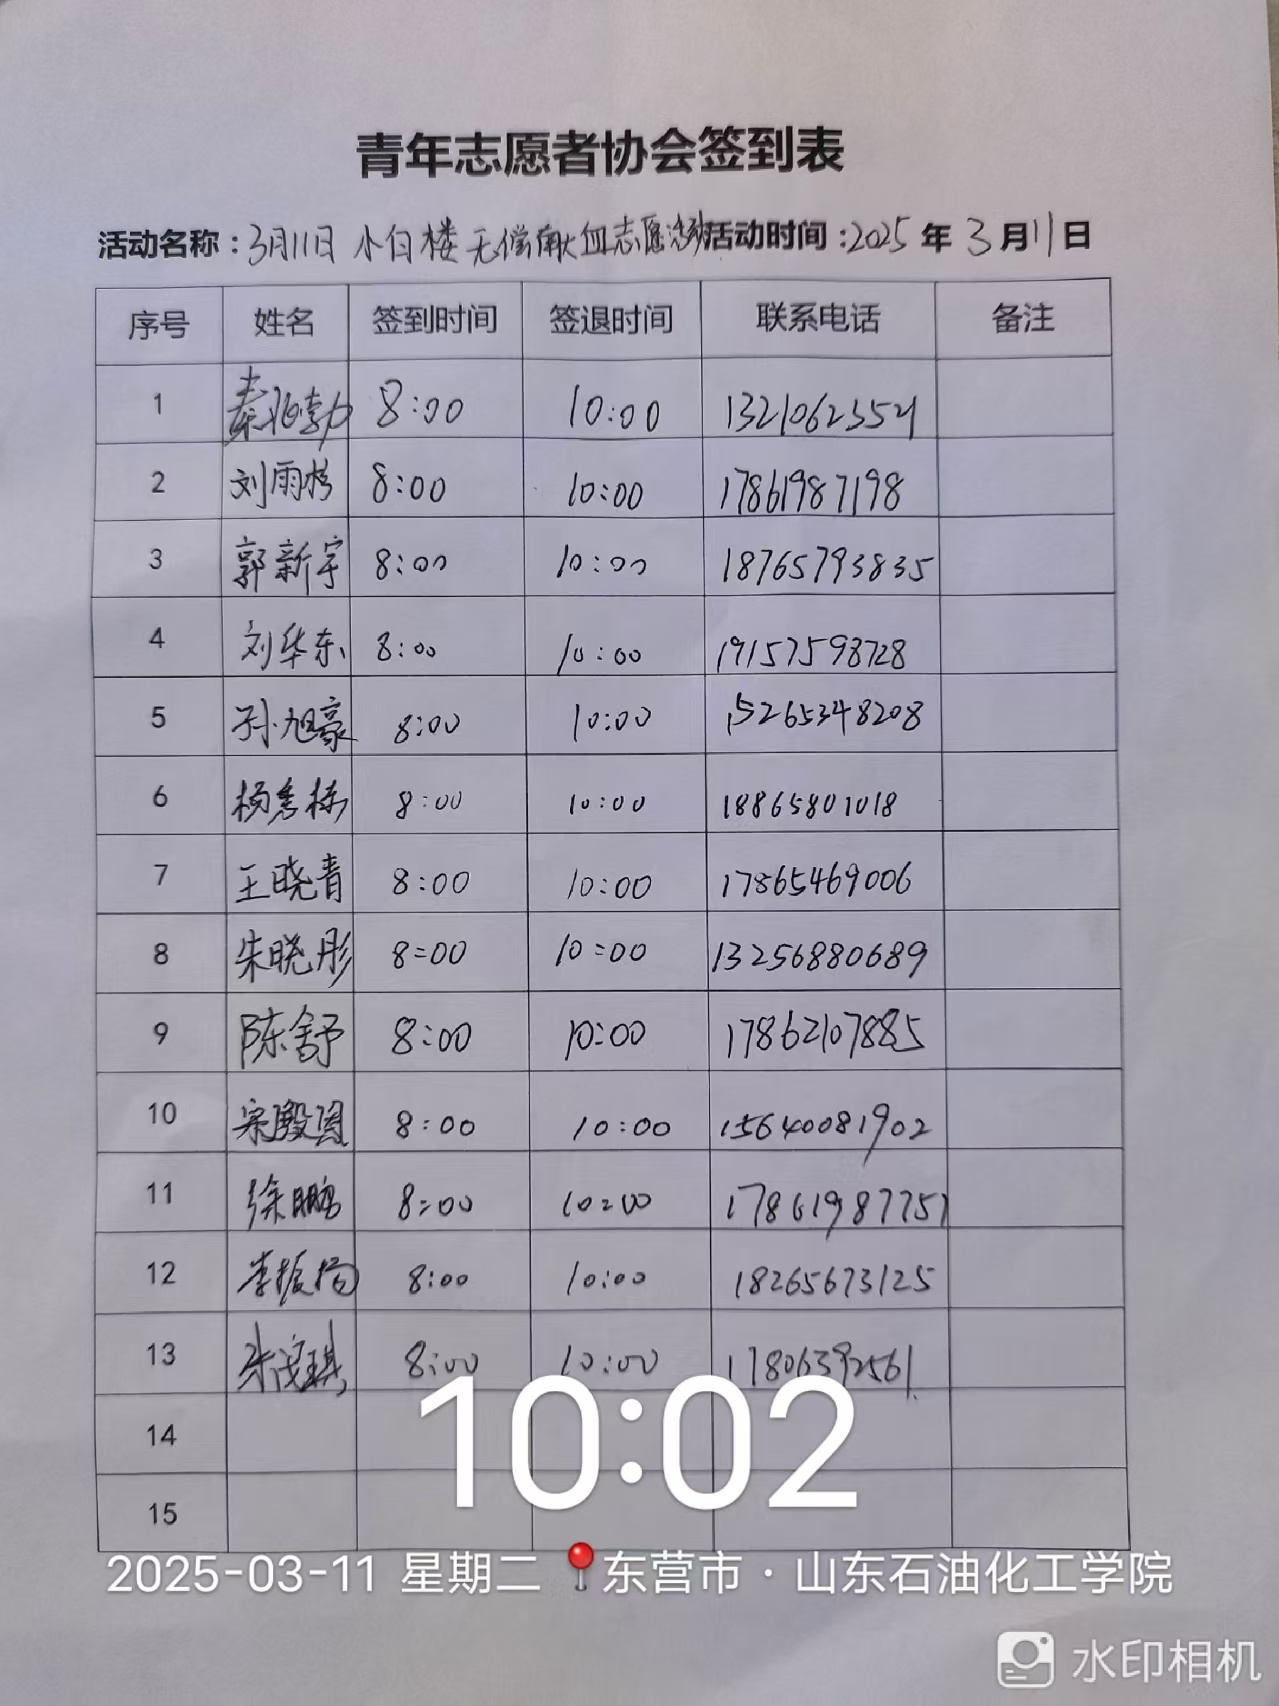 青年志愿者协会签到表
活动名称：3月11日 小白楼 无偿献血志愿活动 活动时间：2025 年 3 月 11 日
序号 姓名 签到时间 签退时间 联系电话 备注
1 秦兆勃 8:00 10:00
2 刘雨杉 8:00 10:00 17861987198
3 郭新宇 8:00 10:00 18765793835
4 刘华东 8:00 10:00 19157598728
5 孙旭豪 8:00 10:00 15265348208
6 杨秀栋 8:00 10:00 18865801018
7 王晓青 8:00 10:00 17865469006
8 朱晓彤 8:00 10:00 13256880689
9 陈舒 8:00 10:00 17862107885
10 8:00 10:00 15640081902
11 徐鹏 8:00 10:00 17861987751
12 李振扬 8:00 10:00 18265673125
13 8:00 10:00 17806392561
14
15
10:02
2025-03-11 星期二 东营市·山东石油化工学院
水印相机